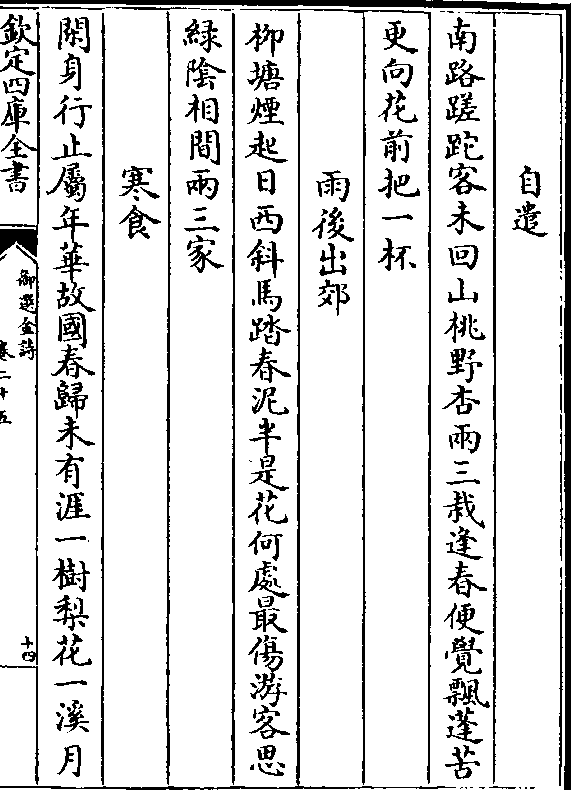 自遣
南路蹉跎客未回山桃野杏兩三栽逢春便覺飄蓬苦
更向花前把一杯
雨後出郊
柳塘煙起日西斜馬踏春泥半是花何處最傷游客思
綠陰相間兩三家
寒食
閑身行止屬年華故國春歸未有涯一樹梨花一溪月
欽定四庫全書
御選金詩
卷二十五
十四